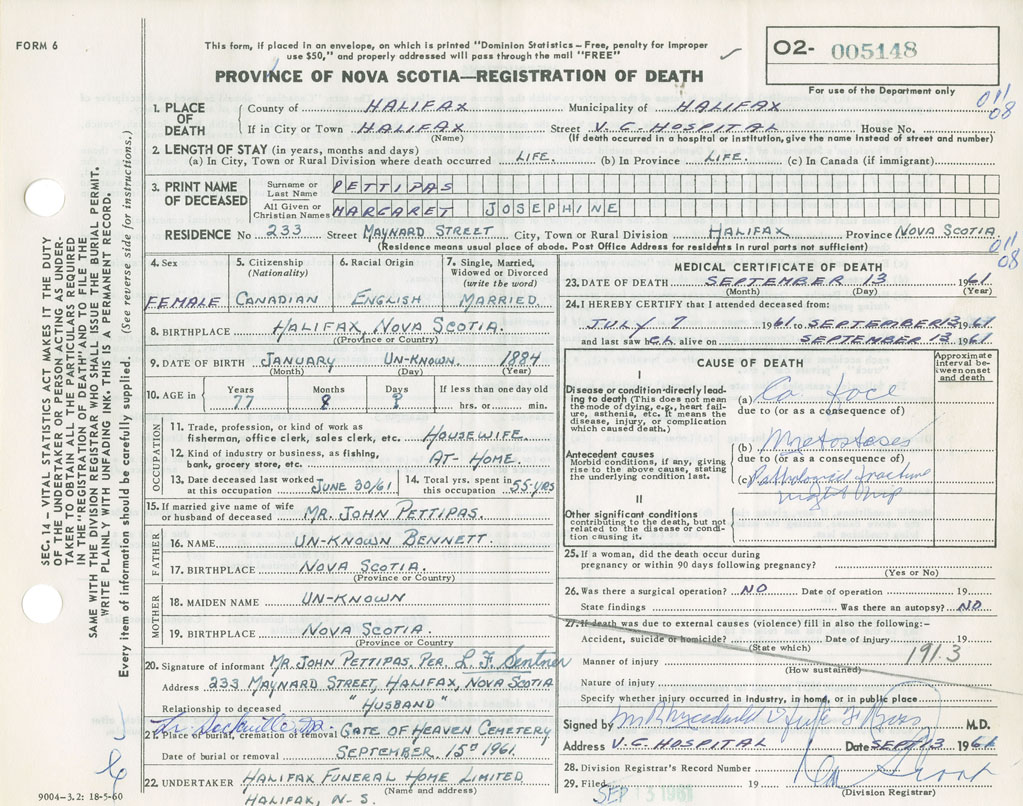 FORM 6
This form, if placed in an envelope, on which is printed "Dominion Statistics – Free, penalty for Improper
use $50," and properly addressed will pass through the mail "FREE"
O2- 005148
For use of the Department only
PROVINCE OF NOVA SCOTIA—REGISTRATION OF DEATH
011
08
1. PLACE OF DEATH
County of HALIFAX Municipality of HALIFAX
If in City or Town HALIFAX Street V.G. HOSPITAL House No.
(Name) (If death occurred in a hospital or institution, give the name instead of street and number)
2. LENGTH OF STAY (in years, months and days)
(a) In City, Town or Rural Division where death occurred LIFE. (b) In Province LIFE. (c) In Canada (if immigrant)
3. PRINT NAME OF DECEASED
Surname or Last Name PETTIPAS
All Given or Christian Names MARGARET JOSEPHINE
RESIDENCE No 233 Street MAYNARD STREET City, Town or Rural Division HALIFAX Province NOVA SCOTIA
(Residence means usual place of abode. Post Office Address for residents in rural parts not sufficient)
011
08
4. Sex
FEMALE
5. Citizenship
(Nationality)
CANADIAN
6. Racial Origin
ENGLISH
7. Single, Married,
Widowed or Divorced
(write the word)
MARRIED
8. BIRTHPLACE HALIFAX, NOVA SCOTIA.
(Province or Country)
9. DATE OF BIRTH JANUARY UN-KNOWN. 1884
(Month) (Day) (Year)
10. AGE in
Years Months Days If less than one day old
77 8 ? hrs. or min.
OCCUPATION
11. Trade, profession, or kind of work as
fisherman, office clerk, sales clerk, etc. HOUSEWIFE.
12. Kind of industry or business, as fishing,
bank, grocery store, etc. AT-HOME.
13. Date deceased last worked
at this occupation JUNE 30/61
14. Total yrs. spent in
this occupation 55-YRS
15. If married give name of wife
or husband of deceased MR. JOHN PETTIPAS.
FATHER
16. NAME UN-KNOWN BENNETT.
17. BIRTHPLACE NOVA SCOTIA.
(Province or Country)
MOTHER
18. MAIDEN NAME UN-KNOWN
19. BIRTHPLACE NOVA SCOTIA.
(Province or Country
20. Signature of informant MR. JOHN PETTIPAS. PER. L. F. Sentner
Address 233 MAYNARD STREET, HALIFAX, NOVA SCOTIA
Relationship to deceased "HUSBAND"
21. Place of burial, cremation or removal GATE OF HEAVEN CEMETERY
Date of burial or removal SEPTEMBER 15th 1961.
22. UNDERTAKER HALIFAX FUNERAL HOME LIMITED
(Name and address)
HALIFAX, N-S.
MEDICAL CERTIFICATE OF DEATH
23. DATE OF DEATH SEPTEMBER 13 1961
(Month) (Day) (Year)
24. I HEREBY CERTIFY that I attended deceased from:
JULY 7 1961 to SEPTEMBER 13 1961
and last saw her alive on SEPTEMBER 13 1961
CAUSE OF DEATH
Approximate
interval between onset
and death
I
Disease or condition directly leading to death (This does not mean
the mode of dying, e.g., heart failure, asthenia, etc. It means the
disease, injury, or complication
which caused death.)
(a) Ca face
due to (or as a consequence of)
Antecedent causes
Morbid conditions, if any, giving
rise to the above cause, stating
the underlying condition last.
(b) Metastases
due to (or as a consequence of)
(c) Pathological fracture
right hip
II
Other significant conditions
contributing to the death, but not
related to the disease or condition causing it.
25. If a woman, did the death occur during
pregnancy or within 90 days following pregnancy?
(Yes or No)
26. Was there a surgical operation? NO Date of operation 19
State findings Was there an autopsy? NO.
27. If death was due to external causes (violence) fill in also the following:-
Accident, suicide or homicide? Date of injury 19
(State which)
191.3
Manner of injury
(How sustained)
Nature of injury
Specify whether injury occurred in Industry, in home, or in public place
Signed by M.D.
Address V.G. HOSPITAL Date SEPT 13 1961
28. Division Registrar's Record Number
29. Filed 19
SEP 13 1961
(Division Registrar)
SEC. 14 – VITAL STATISTICS ACT MAKES IT THE DUTY
OF THE UNDERTAKER OR PERSON ACTING AS UNDERTAKER TO OBTAIN ALL THE PARTICULARS REQUIRED
IN THE "REGISTRATION OF DEATH" AND TO FILE THE
SAME WITH THE DIVISION REGISTRAR WHO SHALL ISSUE THE BURIAL PERMIT.
WRITE PLAINLY WITH UNFADING INK. THIS IS A PERMANENT RECORD.
Every item of information should be carefully supplied. (See reverse side for instructions.)
9004-3.2: 18-5-60